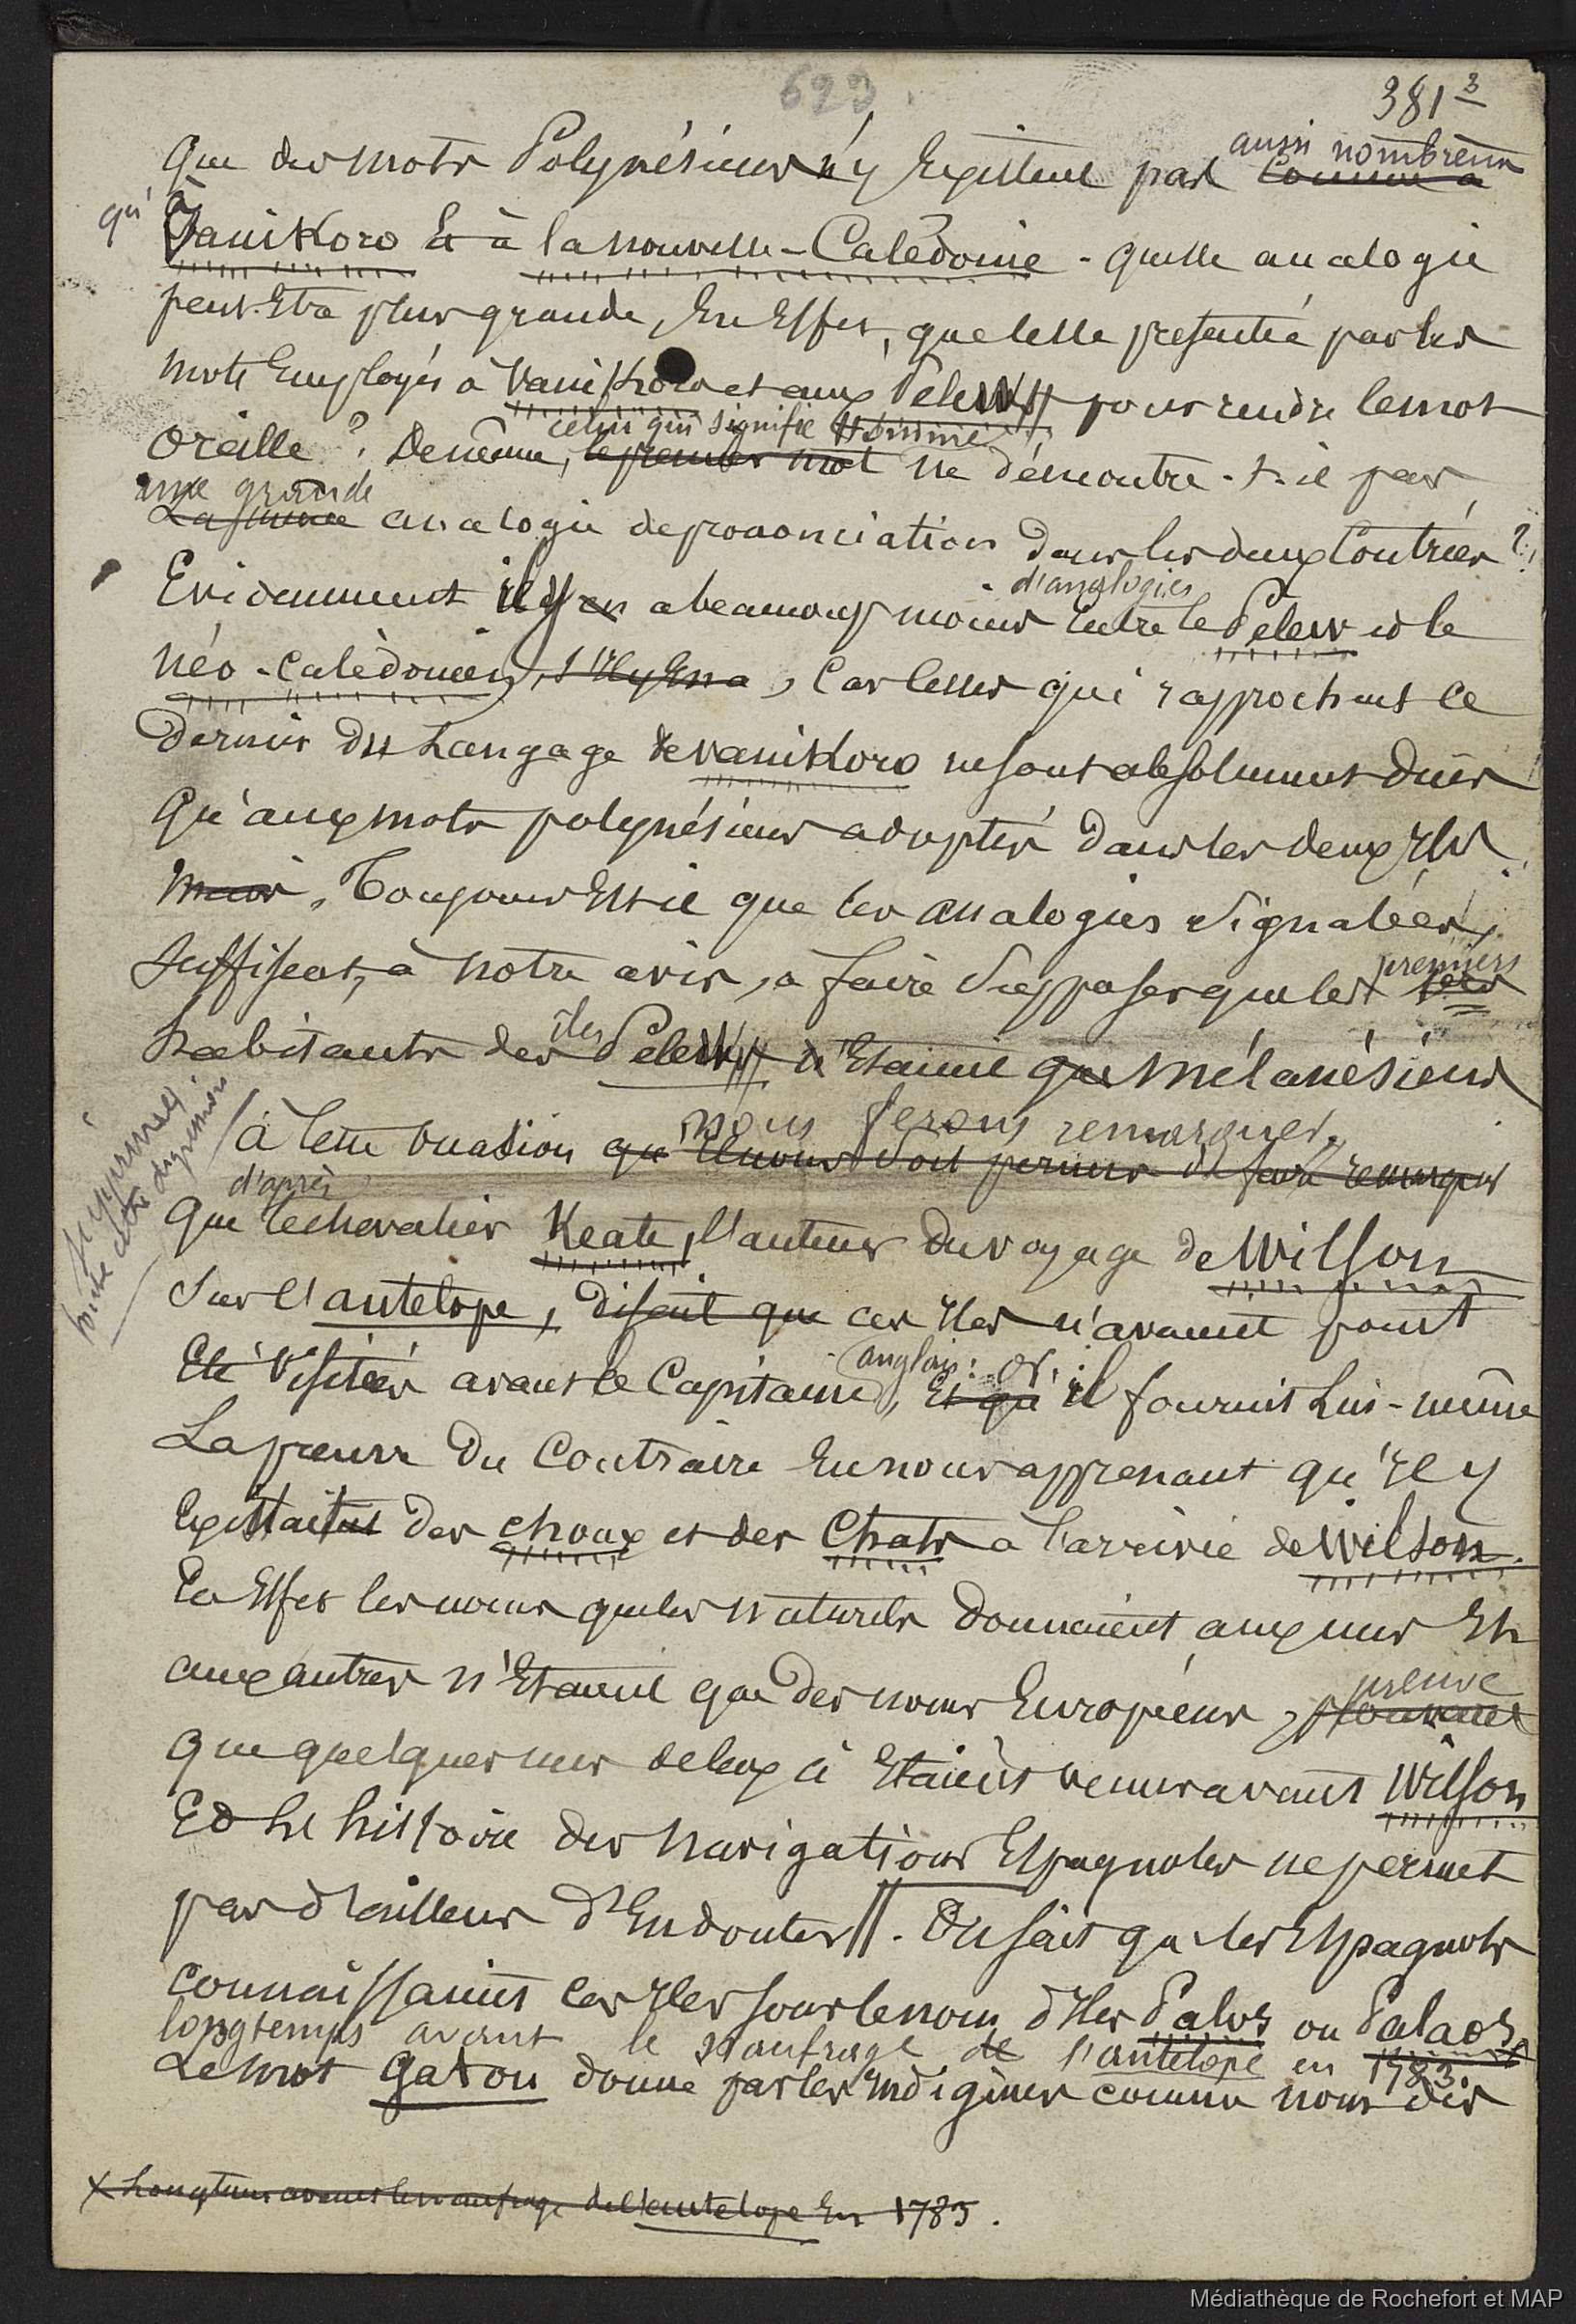 623
381 3
aussi nombreux
que des mots Polynésiens n'y existent pas comme à
qu' à
Vanikoro et à la nouvelle-Calédonie - quelle analogie
peut-être plus grande, en effet, que celle présentée par les
mots employés à Vanikoro et aux Pelew pour rendre le mot
celui qui signifie homme
oreille ? De même, le premier mot ne démontre-t-il pas
une grande
analogie de prononciation dans les deux contrées ?
d'analogies
Evidemment il y en a beaucoup moins entre le Pelew et le
néo-calédonien, s'il y en a, car celles qui rapprochent ce
dernier du langage de vanikoro ne sont absolument dues
qu'aux mots polynésiens adoptés dans les deux iles.
mais. Toujours est-il que les analogies signalées,
premiers
suffisent, à notre avis, à faire supposer que les
îles
habitants des Pelew n'étaient que Mélanésiens
nous ferons remarquer,
à cette occasion qu'il nous soit permis de faire remarquer
supprimer
toute cette digression
d'après
que le chevalier Keate, l'auteur du voyage de Wilson
sur l'antelope, disait que ces iles n'avaient point
anglais: or,
été visitées avant le Capitaine, et qu'il fournit lui-même
La preuve du contraire en nous apprenant qu'il y
existait des choux et des chats à l'arrivée de Wilson.
En effet les noms que les naturels donnaient aux uns et
aux autres n'étaient que des noms Européens, prouvant
preuve
que quelques uns de ceux ci étaient venus avant Wilson
Et l'histoire des navigations Espagnoles ne permet
pas d'ailleurs d'en douter. On sait que les Espagnols
connaissaient ces iles sous le nom d'iles Palos ou Palaos
longtemps avant le naufrage de l'antelope en 1783.
Le mot gatou donné par les indigènes comme nom des
x Longtems avant le naufrage de l'antelope en 1783.
Médiathèque de Rochefort et MAP